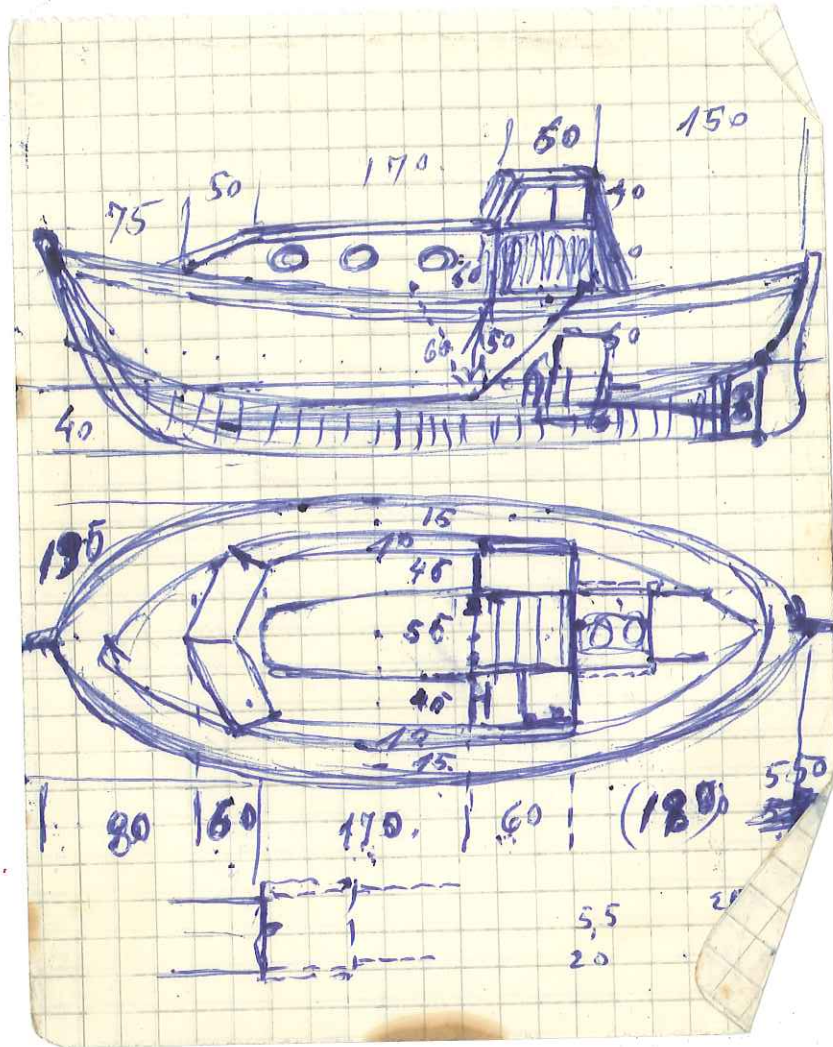 60 150
50 170
75
40
60
60 50 50
40
195
15
10
45
55
45
10
15
5.50
80 60 170. 60 (180)
5,5
20